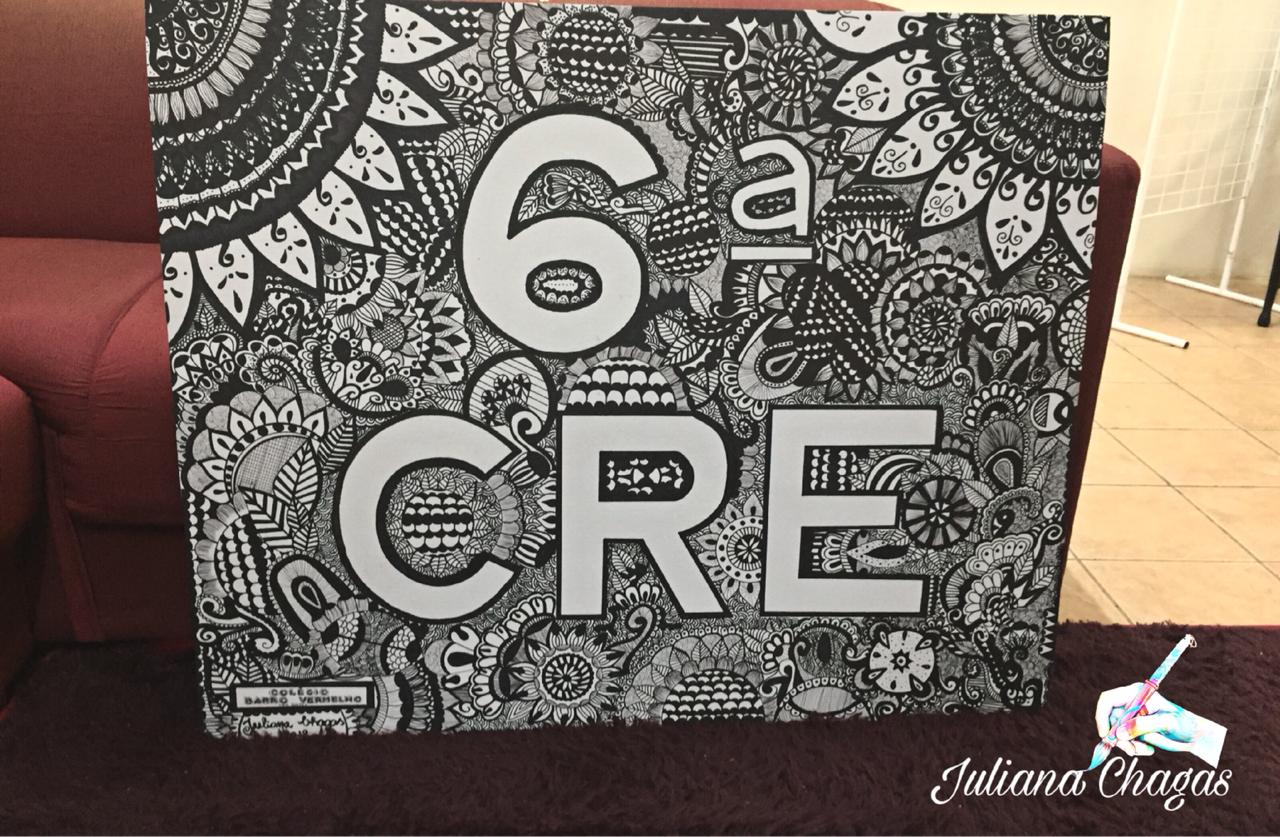 6ª
CRE
COLÉGIO
BARRO VERMELHO
Juliana Chagas
Juliana Chagas